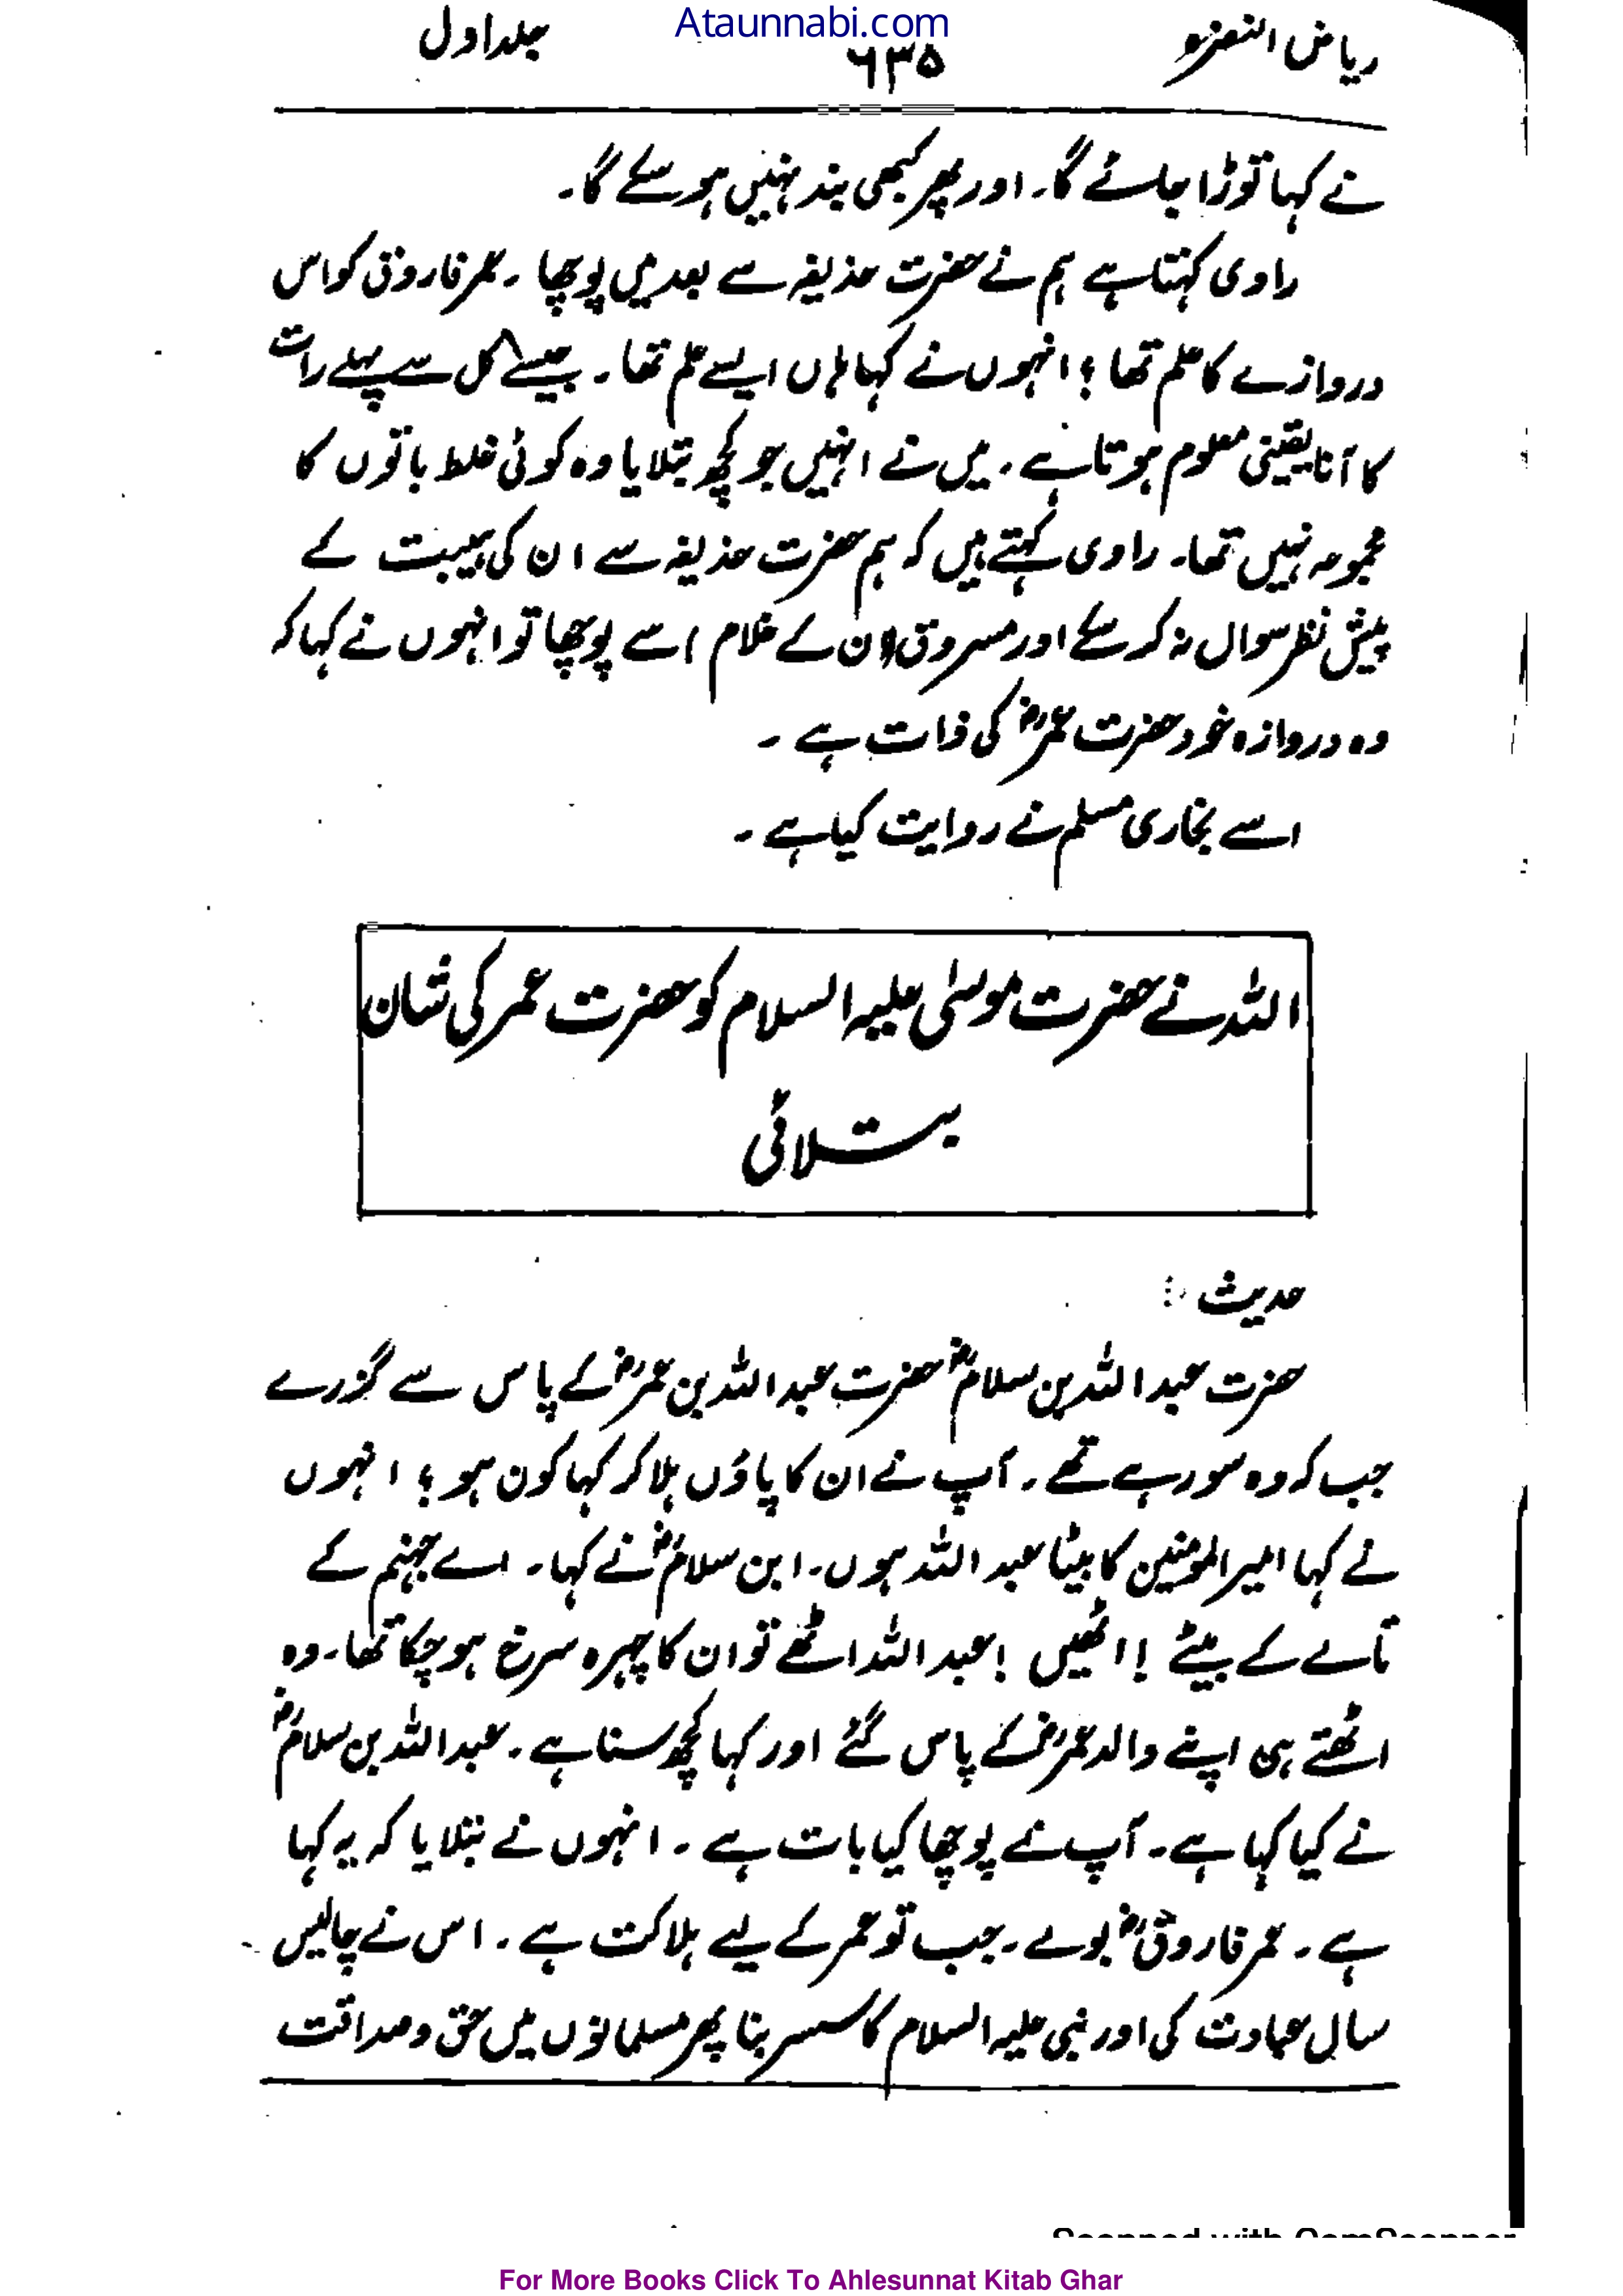 Ataunnabi.com
ریاض النضرہ ۶۳۵ جلد اول
نے کہا توڑا جائے گا۔ اور پھر کبھی بند نہیں ہو سکے گا۔
راوی کہتا ہے ہم نے حضرت حذیفہ سے بعد میں پوچھا ۔ عمر فاروق کو اس
دروازے کا علم تھا ؟ انہوں نے کہا ہاں ایسے علم تھا ۔ جیسے کل سے پہلے رات
کا آنا یقینی معلوم ہوتا ہے ۔ میں نے انہیں جو کچھ بتلایا وہ کوئی غلط باتوں کا
مجموعہ نہیں تھا۔ راوی کہتے ہیں کہ ہم حضرت حذیفہ سے ان کی ہیبت کے
پیش نظر سوال نہ کر سکے اور مسروق (ان کے غلام ) سے پوچھا تو انہوں نے کہا کہ
وہ دروازہ خود حضرت عمرؓ کی ذات ہے ۔
اسے بخاری مسلم نے روایت کیا ہے ۔
اللہ نے حضرت موسیٰ علیہ السلام کو حضرت عمر کی شان
بتلائی
حدیث :
حضرت عبد اللہ بن سلامؓ حضرت عبد اللہ بن عمرؓ کے پاس سے گزرے
جب کہ وہ سو رہے تھے ۔ آپ نے ان کا پاؤں ہلا کر کہا کون ہو ؟ انہوں
نے کہا امیر المومنین کا بیٹا عبد اللہ ہوں ۔ ابن سلامؓ نے کہا ۔ اے جہنم کے
تالے کے بیٹے ! اٹھیں ! عبد اللہ اٹھے تو ان کا چہرہ سرخ ہو چکا تھا ۔ وہ
اٹھتے ہی اپنے والد عمرؓ کے پاس گئے اور کہا کچھ سنا ہے ۔ عبد اللہ بن سلامؓ
نے کیا کہا ہے ۔ آپ نے پوچھا کیا بات ہے ۔ انہوں نے بتلایا کہ یہ کہا
ہے ۔ عمر فاروقؓ بولے ۔ جب تو عمر کے لیے ہلاکت ہے ۔ اس نے چالیس
سال عبادت کی اور نبی علیہ السلام کا سسر بنا پھر مسلمانوں میں حق و صداقت
Scanned with CamScanner
For More Books Click To Ahlesunnat Kitab Ghar